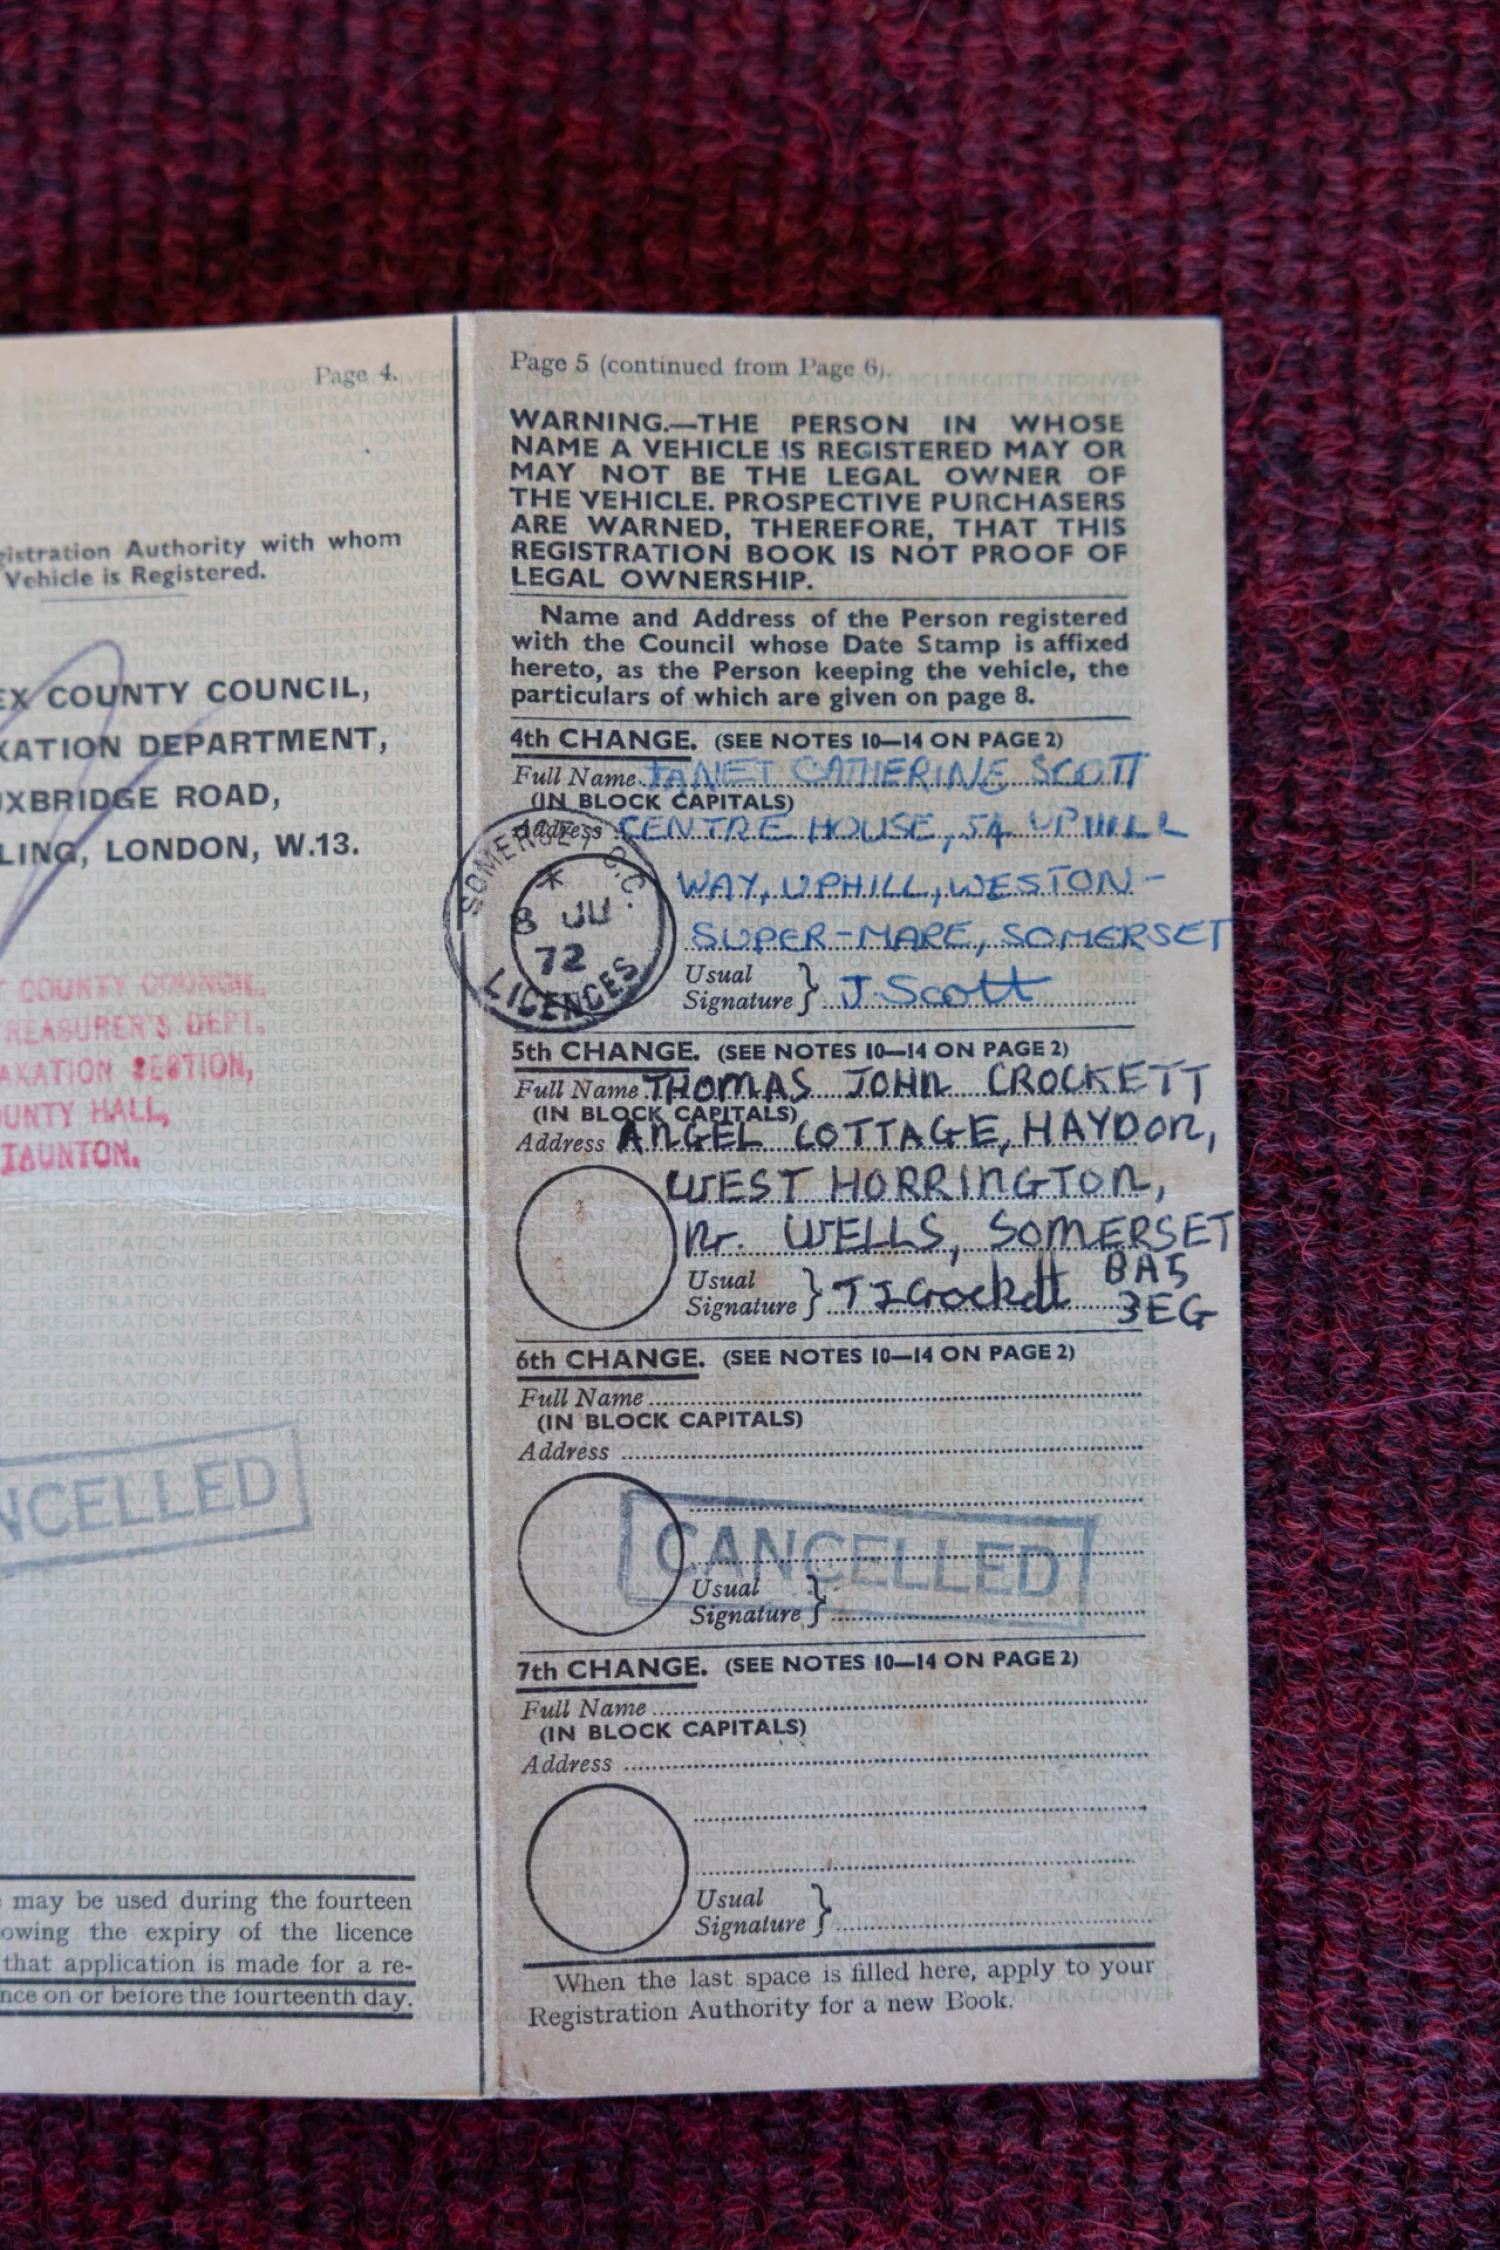 Page 4.
gistration Authority with whom
Vehicle is Registered.
EX COUNTY COUNCIL,
XATION DEPARTMENT,
UXBRIDGE ROAD,
LING, LONDON, W.13.
T COUNTY COUNCIL,
TREASURER'S DEPT.
AXATION SECTION,
OUNTY HALL,
TAUNTON.
NCELLED
may be used during the fourteen
owing the expiry of the licence
that application is made for a re-
nce on or before the fourteenth day.
Page 5 (continued from Page 6).
WARNING.—THE PERSON IN WHOSE
NAME A VEHICLE IS REGISTERED MAY OR
MAY NOT BE THE LEGAL OWNER OF
THE VEHICLE. PROSPECTIVE PURCHASERS
ARE WARNED, THEREFORE, THAT THIS
REGISTRATION BOOK IS NOT PROOF OF
LEGAL OWNERSHIP.
Name and Address of the Person registered
with the Council whose Date Stamp is affixed
hereto, as the Person keeping the vehicle, the
particulars of which are given on page 8.
4th CHANGE. (SEE NOTES 10—14 ON PAGE 2)
Full Name JANET CATHERINE SCOTT
(IN BLOCK CAPITALS)
Address CENTRE HOUSE, 54 UPHILL
WAY, UPHILL, WESTON-
SUPER-MARE, SOMERSET
SOMERSET C.C.
8 JU
72
LICENCES
Usual
Signature } J. Scott
5th CHANGE. (SEE NOTES 10—14 ON PAGE 2)
Full Name THOMAS JOHN CROCKETT
(IN BLOCK CAPITALS)
Address ANGEL COTTAGE, HAYDON,
WEST HORRINGTON,
Nr. WELLS, SOMERSET
BA5
3EG
Usual
Signature } T J Crockett
6th CHANGE. (SEE NOTES 10—14 ON PAGE 2)
Full Name
(IN BLOCK CAPITALS)
Address
CANCELLED
Usual
Signature }
7th CHANGE. (SEE NOTES 10—14 ON PAGE 2)
Full Name
(IN BLOCK CAPITALS)
Address
Usual
Signature }
When the last space is filled here, apply to your
Registration Authority for a new Book.